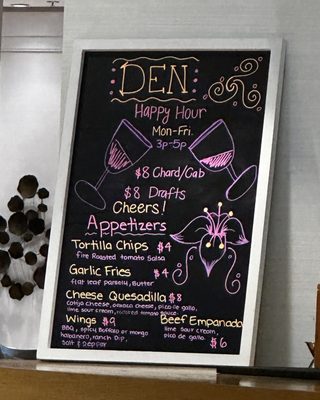 DEN
Happy Hour
Mon-Fri.
3p-5p
$8 Chard/Cab
$8 Drafts
Cheers!
Appetizers
Tortilla Chips $4
fire Roasted tomato Salsa
Garlic Fries $4
flat leaf parselly, Butter
Cheese Quesadilla $8
Cotija cheese, oaxaca cheese, pico de gallo,
lime sour cream, roasted tomato sauce.
Wings $9
BBQ, spicy Buffalo or mango
habanero, ranch Dip,
Salt & pepper
Beef Empanada
lime sour cream,
pico de gallo.
$6